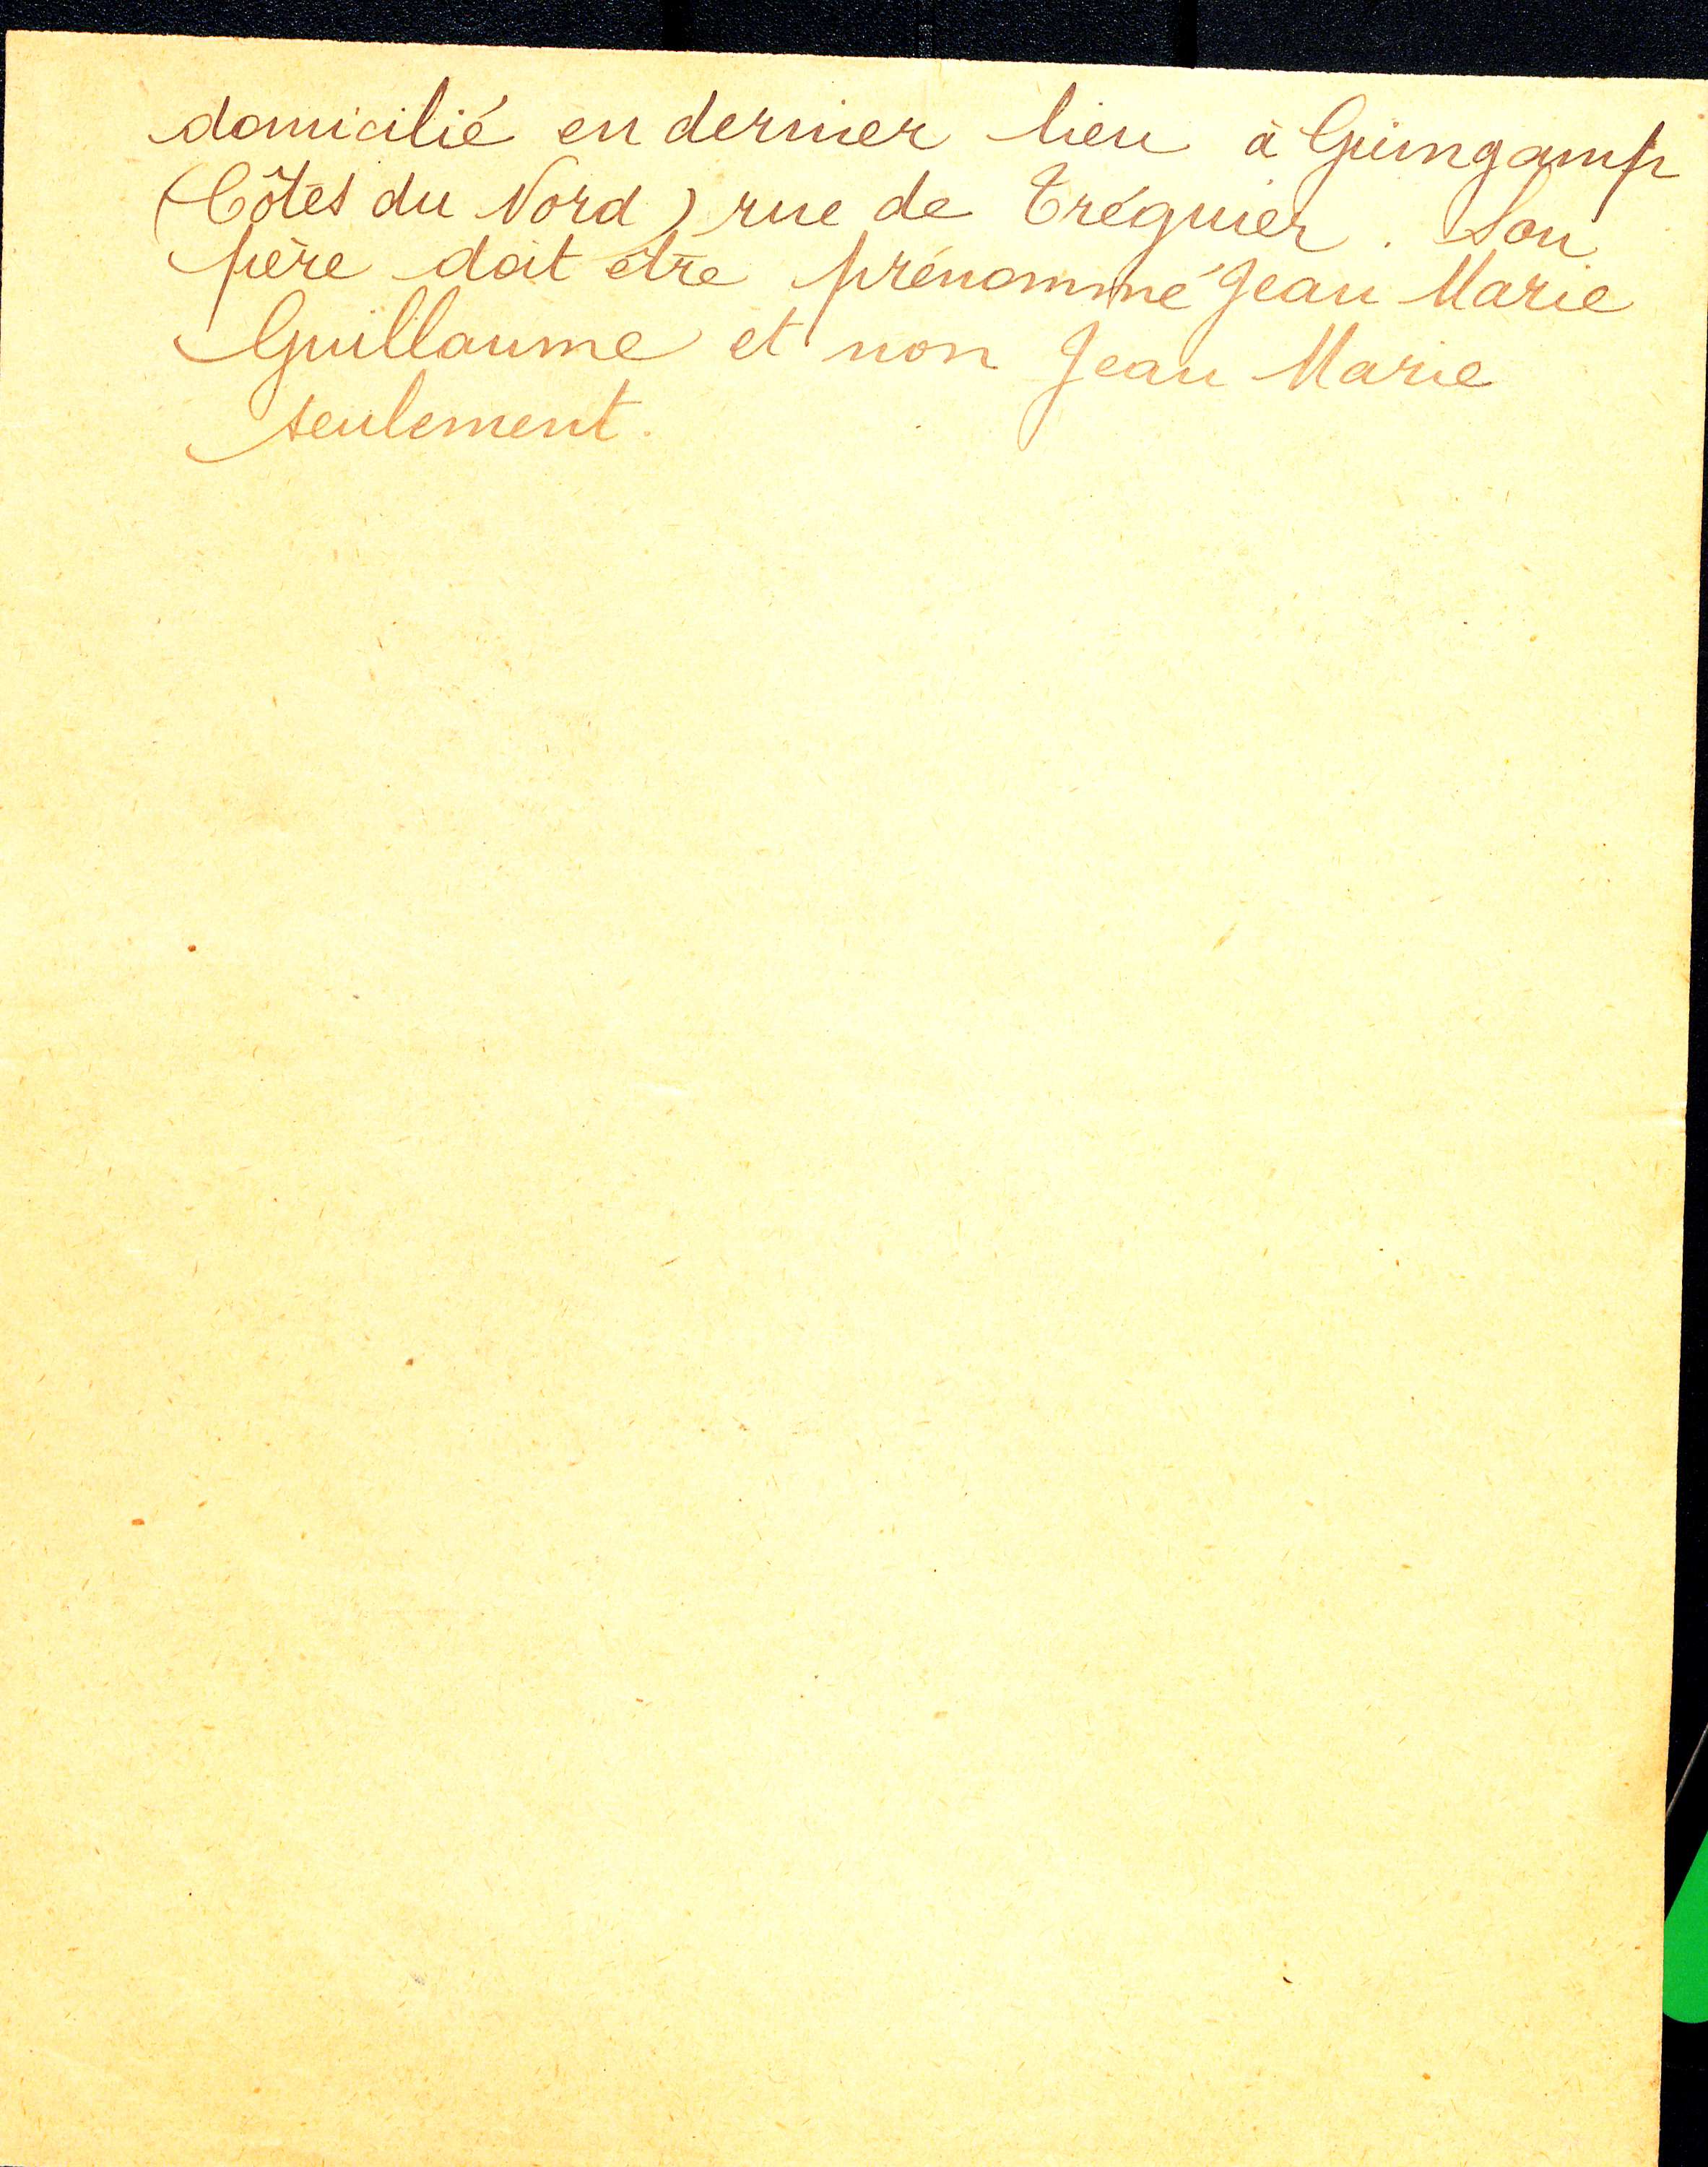 domicilié en dernier lieu à Guingamp
(Côtes du Nord) rue de Tréguier. Son
père doit être prénommé Jean Marie
Guillaume et non Jean Marie
seulement.